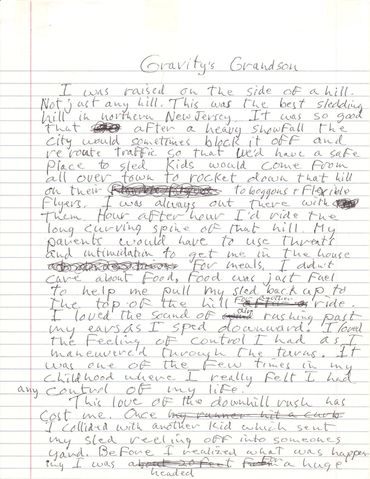 Gravity's Grandson
I was raised on the side of a hill.
Not just any hill. This was the best sledding
hill in northern New Jersey. It was so good
that after a heavy snowfall the
city would sometimes block it off and
reroute traffic so that we'd have a safe
place to sled. Kids would come from
all over town to rocket down that hill
on their toboggons & Flexible
Flyers. I was always out there with
them. Hour after hour I'd ride the
long curving spine of that hill. My
parents would have to use threats
and intimidation to get me in the house
for meals. I didn't
care about food, food was just fuel
to help me pull my sled back up to
the top of the hill for another ride.
I loved the sound of air rushing past
my ears as I sped downward. I loved
the feeling of control I had as I
maneuver'd through the turns. It
was one of the few times in my
childhood where I really felt I had
any control of my life.
This love of the downhill rush has
cost me. Once my runner hit a curb
I collided with another kid which sent
my sled reeling off into someones
yard. Before I realized what was happen
ing I was about 20 feet from a huge
headed for